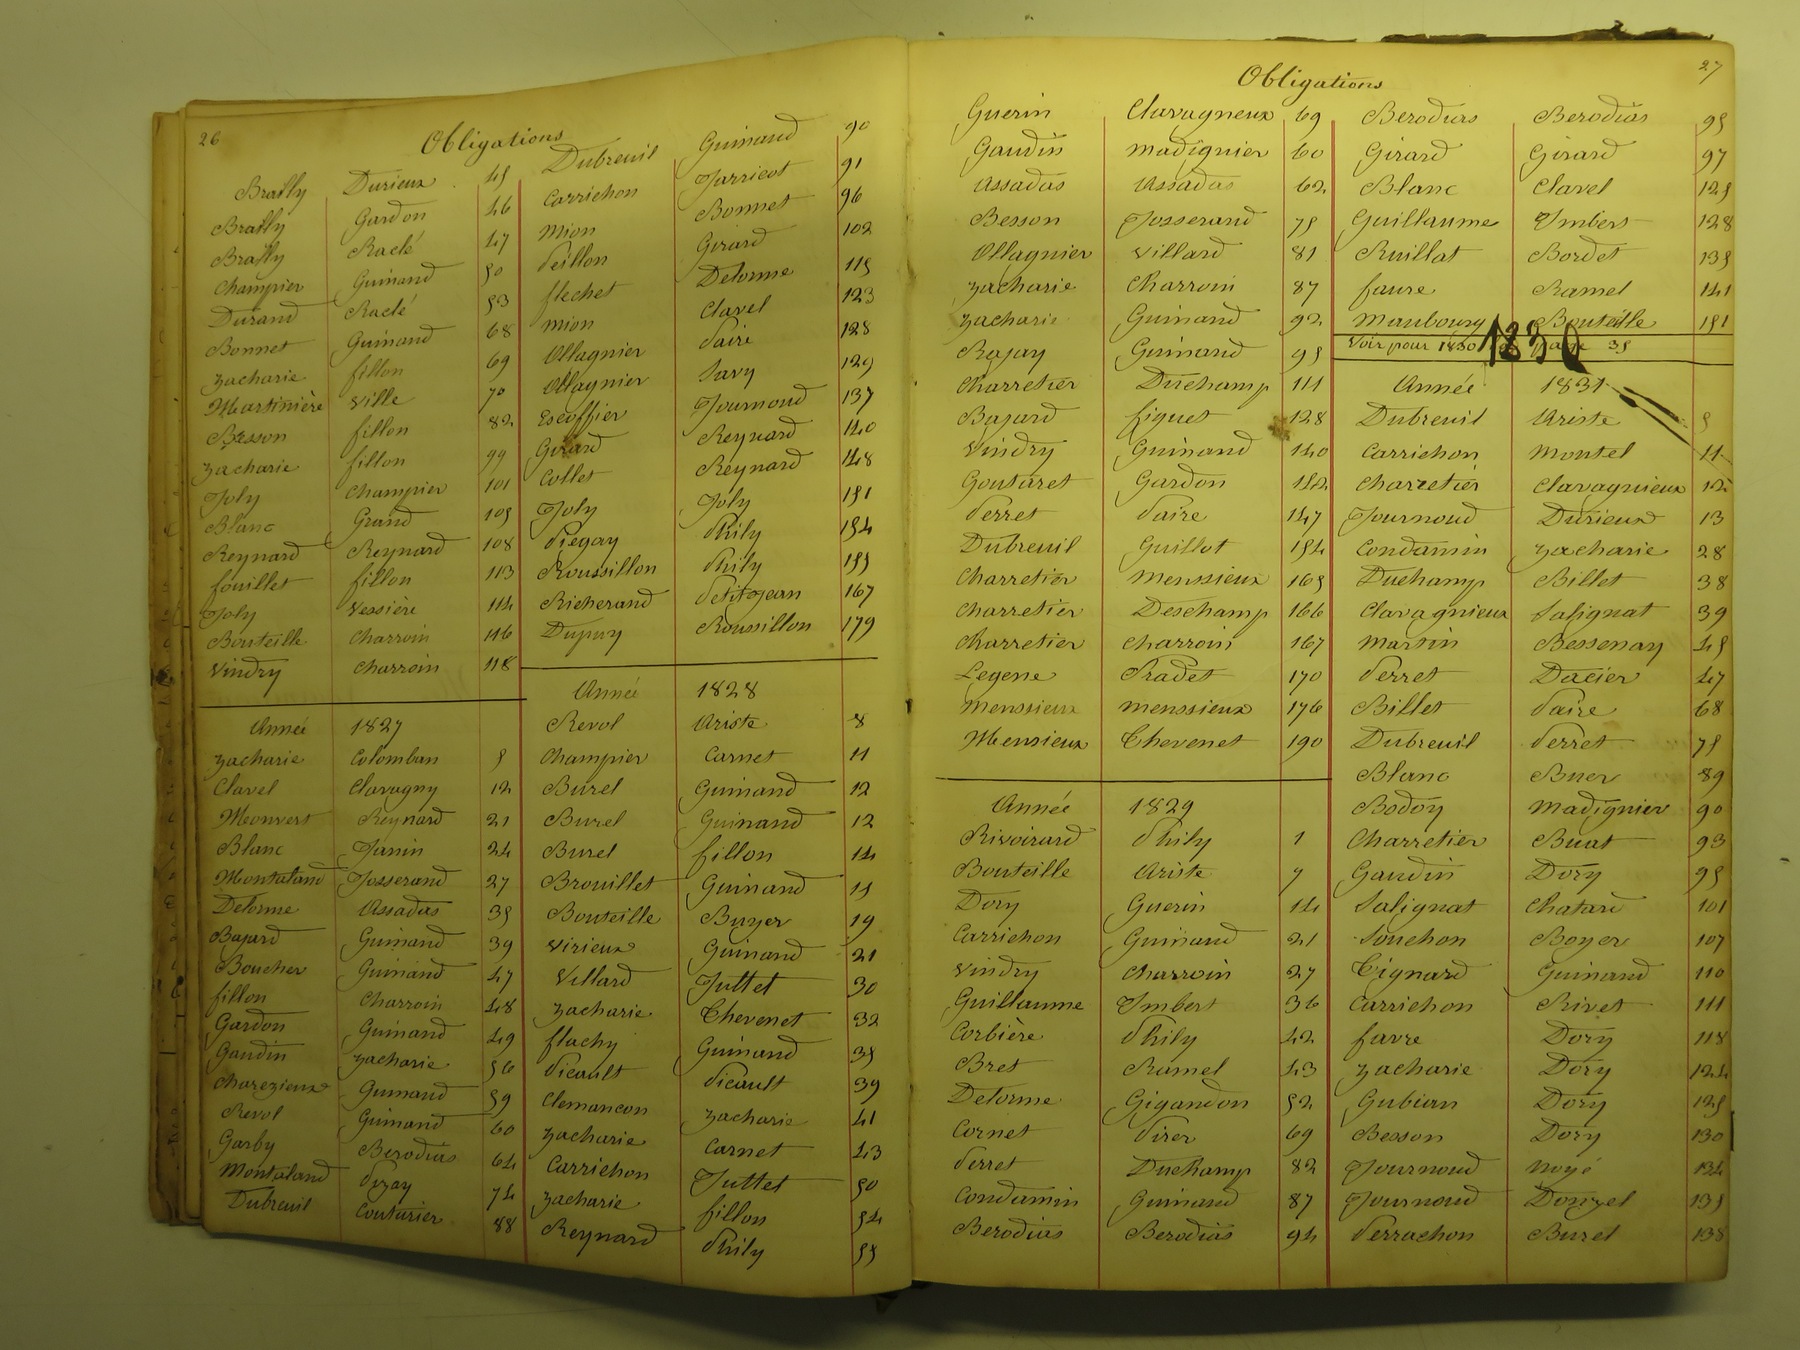 26
Obligations
Brally Durieux 45
Brally Gardon 46
Brally Raclé 47
Champier Guinand 50
Durand Raclé 53
Bonnet Guinand 68
Zacharie fillon 69
Martinière Ville 70
Besson fillon 82
Zacharie fillon 99
Joly Champier 101
Blanc Grand 105
Reynard Reynard 108
fouillet fillon 113
Joly Vessière 114
Bouteille Charroin 116
Vindry Charroin 118
Année 1827
Zacharie Colomban 5
Clavel Clavagny 12
Monvert Reynard 21
Blanc Janin 24
Montaland Josserand 27
Delorme Assadas 35
Bajard Guinand 39
Boucher Guinand 47
fillon Charroin 48
Gardon Guinand 49
Gaudin Zacharie 56
Charezieux Guinand 59
Revol Guinand 60
Garby Berodias 64
Montaland Pizay 74
Dubreuil Couturier 88
Dubreuil Guinand 90
Carrichon Jarricot 91
Mion Bonnet 96
Peillon Girard 102
flechet Delorme 115
Mion Clavel 123
Ollagnier Paire 128
Ollagnier Savy 129
Escoffier Journoud 137
Girard Reynard 140
Collet Reynard 148
Joly Joly 151
Piegay Phily 154
Roussillon Phily 155
Richerand Petitjean 167
Dupuy Roussillon 179
Année 1828
Revol Ariste 8
Champier Carnet 11
Burel Guinand 12
Burel Guinand 12
Burel fillon 14
Brouillet Guinand 15
Bouteille Buyer 19
Virieux Guinand 21
Villard Juttet 30
Zacharie Chevenet 32
flachy Guinand 35
Picault Picault 39
Clemancon Zacharie 41
Zacharie Carnet 43
Carrichon Juttet 50
Zacharie fillon 54
Reynard Phily 55
27
Obligations
Guerin Clavagneux 69
Gaudin Madignier 60
Assadas Assadas 62
Besson Josserand 75
Ollagnier Villard 81
Zacharie Charroin 87
Zacharie Guinand 92
Bajay Guinand 95
Charretier Duchamp 111
Bajard figuet 128
Vindry Guinand 140
Goutaret Gardon 142
Perret Paire 147
Dubreuil Guillot 154
Charretier Menssieux 165
Charretier Deschamp 166
Charretier Charroin 167
Legene Pradet 170
Menssieux Menssieux 176
Mensieux Chevenet 190
Année 1829
Rivoirard Phily 1
Bouteille Ariste 7
Dory Guerin 14
Carrichon Guinand 21
Vindry Charroin 27
Guillaume Imbert 36
Corbière Phily 42
Bret Ramel 43
Delorme Gigandon 52
Cornet Pirer 69
Perret Duchamp 82
Condamin Guinand 87
Berodias Berodias 94
Berodias Berodias 95
Girard Girard 97
Blanc Clavel 125
Guillaume Imbert 128
Ruillat Bordet 135
faure Ramel 141
Maubourg Bouteille 151
Voir pour 1830 page 35
1830
Année 1831
Dubreuil Ariste 5
Carrichon Montel 11
Charretier Clavagnieux 12
Journoud Durieux 13
Condamin Zacharie 28
Duchamp Billet 38
Clavagnieux Salignat 39
Martin Bessenay 45
Perret Dacier 47
Billet Paire 68
Dubreuil Perret 75
Blanc Buer 89
Bodoy Madignier 90
Charretier Buat 93
Gaudin Dory 95
Salignat Chatard 101
Souchon Boyer 107
Tignard Guinand 110
Carrichon Rivet 111
favre Dory 118
Zacharie Dory 124
Gubian Dory 125
Besson Dory 130
Journoud Noyé 134
Journoud Donzel 135
Perrachon Burel 138